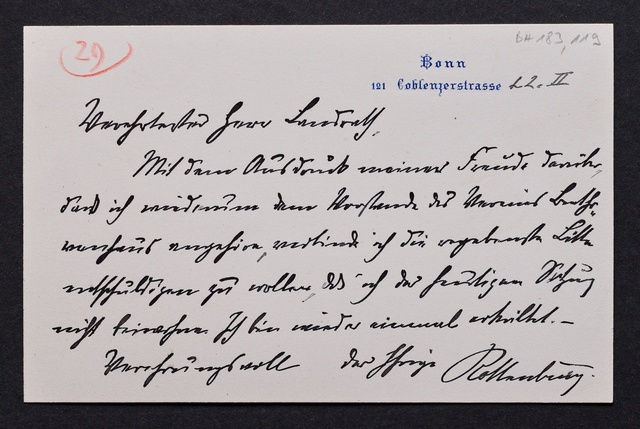 29
BH 183, 119
Bonn
121 Coblenzerstrasse 22. II
Verehrtester Herr Landrath,
Mit dem Ausdruck meiner Freude darüber,
daß ich wiederum dem Vorstande des Vereins Beetho-
venhaus angehöre, verbinde ich die ergebenste Bitte
entschuldigen zu wollen, daß ich der heutigen Sitzung
nicht beiwohne. Ich bin wieder einmal erkältet. –
Verehrungsvoll der Ihrige Rottenburg.